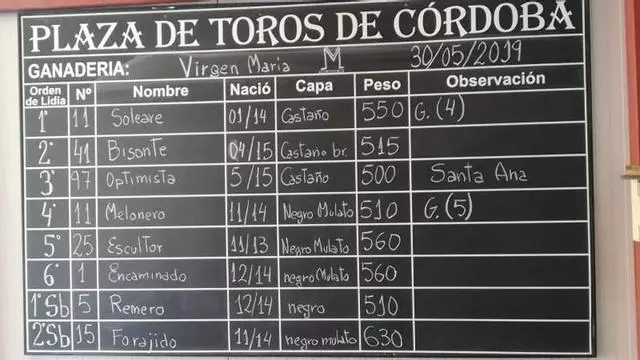 PLAZA DE TOROS DE CÓRDOBA
GANADERIA: Virgen Maria M 30/05/2019
Orden de Lidia Nº Nombre Nació Capa Peso Observación
1º 11 Soleare 01/14 Castaño 550 G. (4)
2º 41 Bisonte 04/15 Castaño br. 515
3º 97 Optimista 5/15 Castaño 500 Santa Ana
4º 11 Melonero 11/14 Negro Mulato 510 G. (5)
5º 25 Escultor 11/13 Negro Mulato 560
6º 1 Encaminado 12/14 negro Mulato 560
1ºSb 5 Remero 12/14 negro 510
2ºSb 15 Forajido 11/14 negro mulato 630